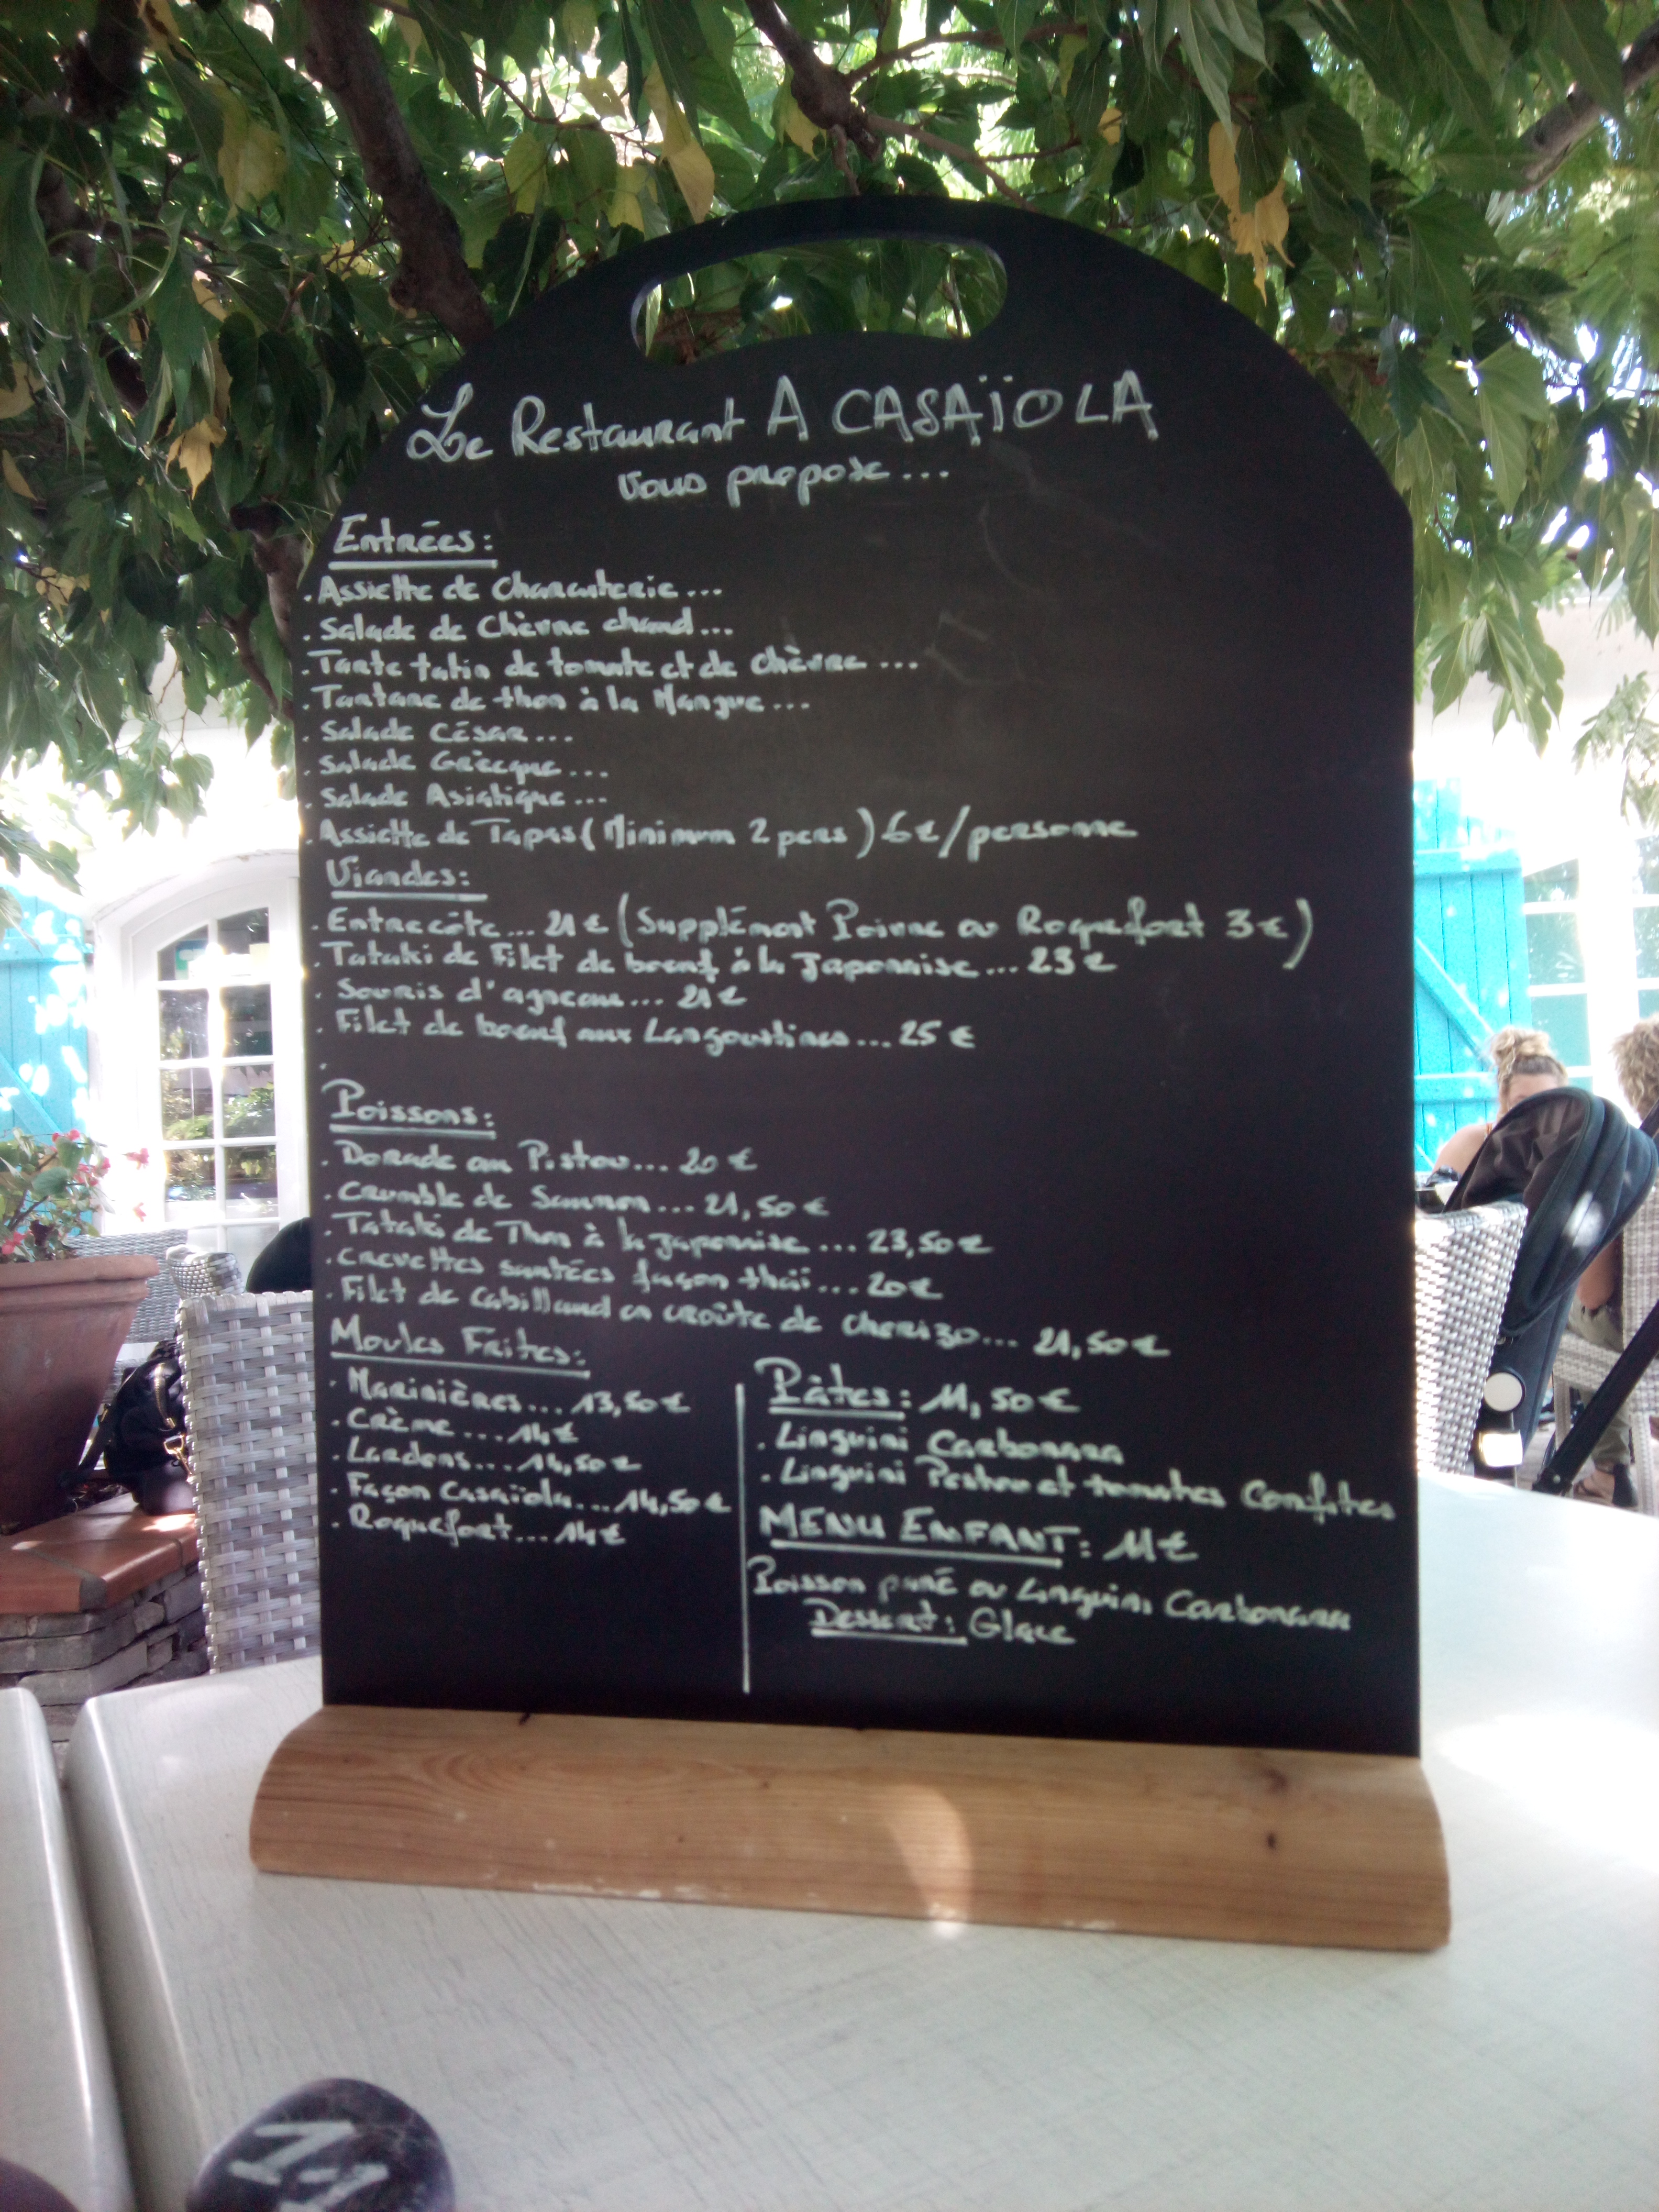 Le Restaurant A CASAÏOLA
vous propose...
Entrées:
. Assiette de Charcuterie...
. Salade de Chèvre chaud...
. Tarte tatin de tomate et de chèvre ...
. Tartare de thon à la Mangue...
. Salade César...
. Salade Grècque...
. Salade Asiatique...
. Assiette de Tapas (Minimum 2 pers) 6€/personne
Viandes:
. Entrecôte... 21€ (Supplément Poivre ou Roquefort 3€)
. Tataki de Filet de boeuf à la Japonaise... 23€
. Souris d'agneau... 21€
. Filet de boeuf aux Langoustines... 25€
.
Poissons:
. Dorade au Pistou... 20€
. Crumble de Saumon... 21,50€
. Tataki de Thon à la japonaise... 23,50€
. Crevettes sautées façon thaï... 20€
. Filet de Cabillaud en croûte de chorizo... 21,50€
Moules Frites:
. Marinières... 13,50€
. Crème... 14€
. Lardons... 14,50€
. Façon Casaïola... 14,50€
. Roquefort... 14€
Pâtes: 11,50€
. Linguini Carbonara
. Linguini Pistou et tomates Confites
MENU ENFANT: 11€
Poisson puré ou Linguini Carbonara
Dessert: Glace